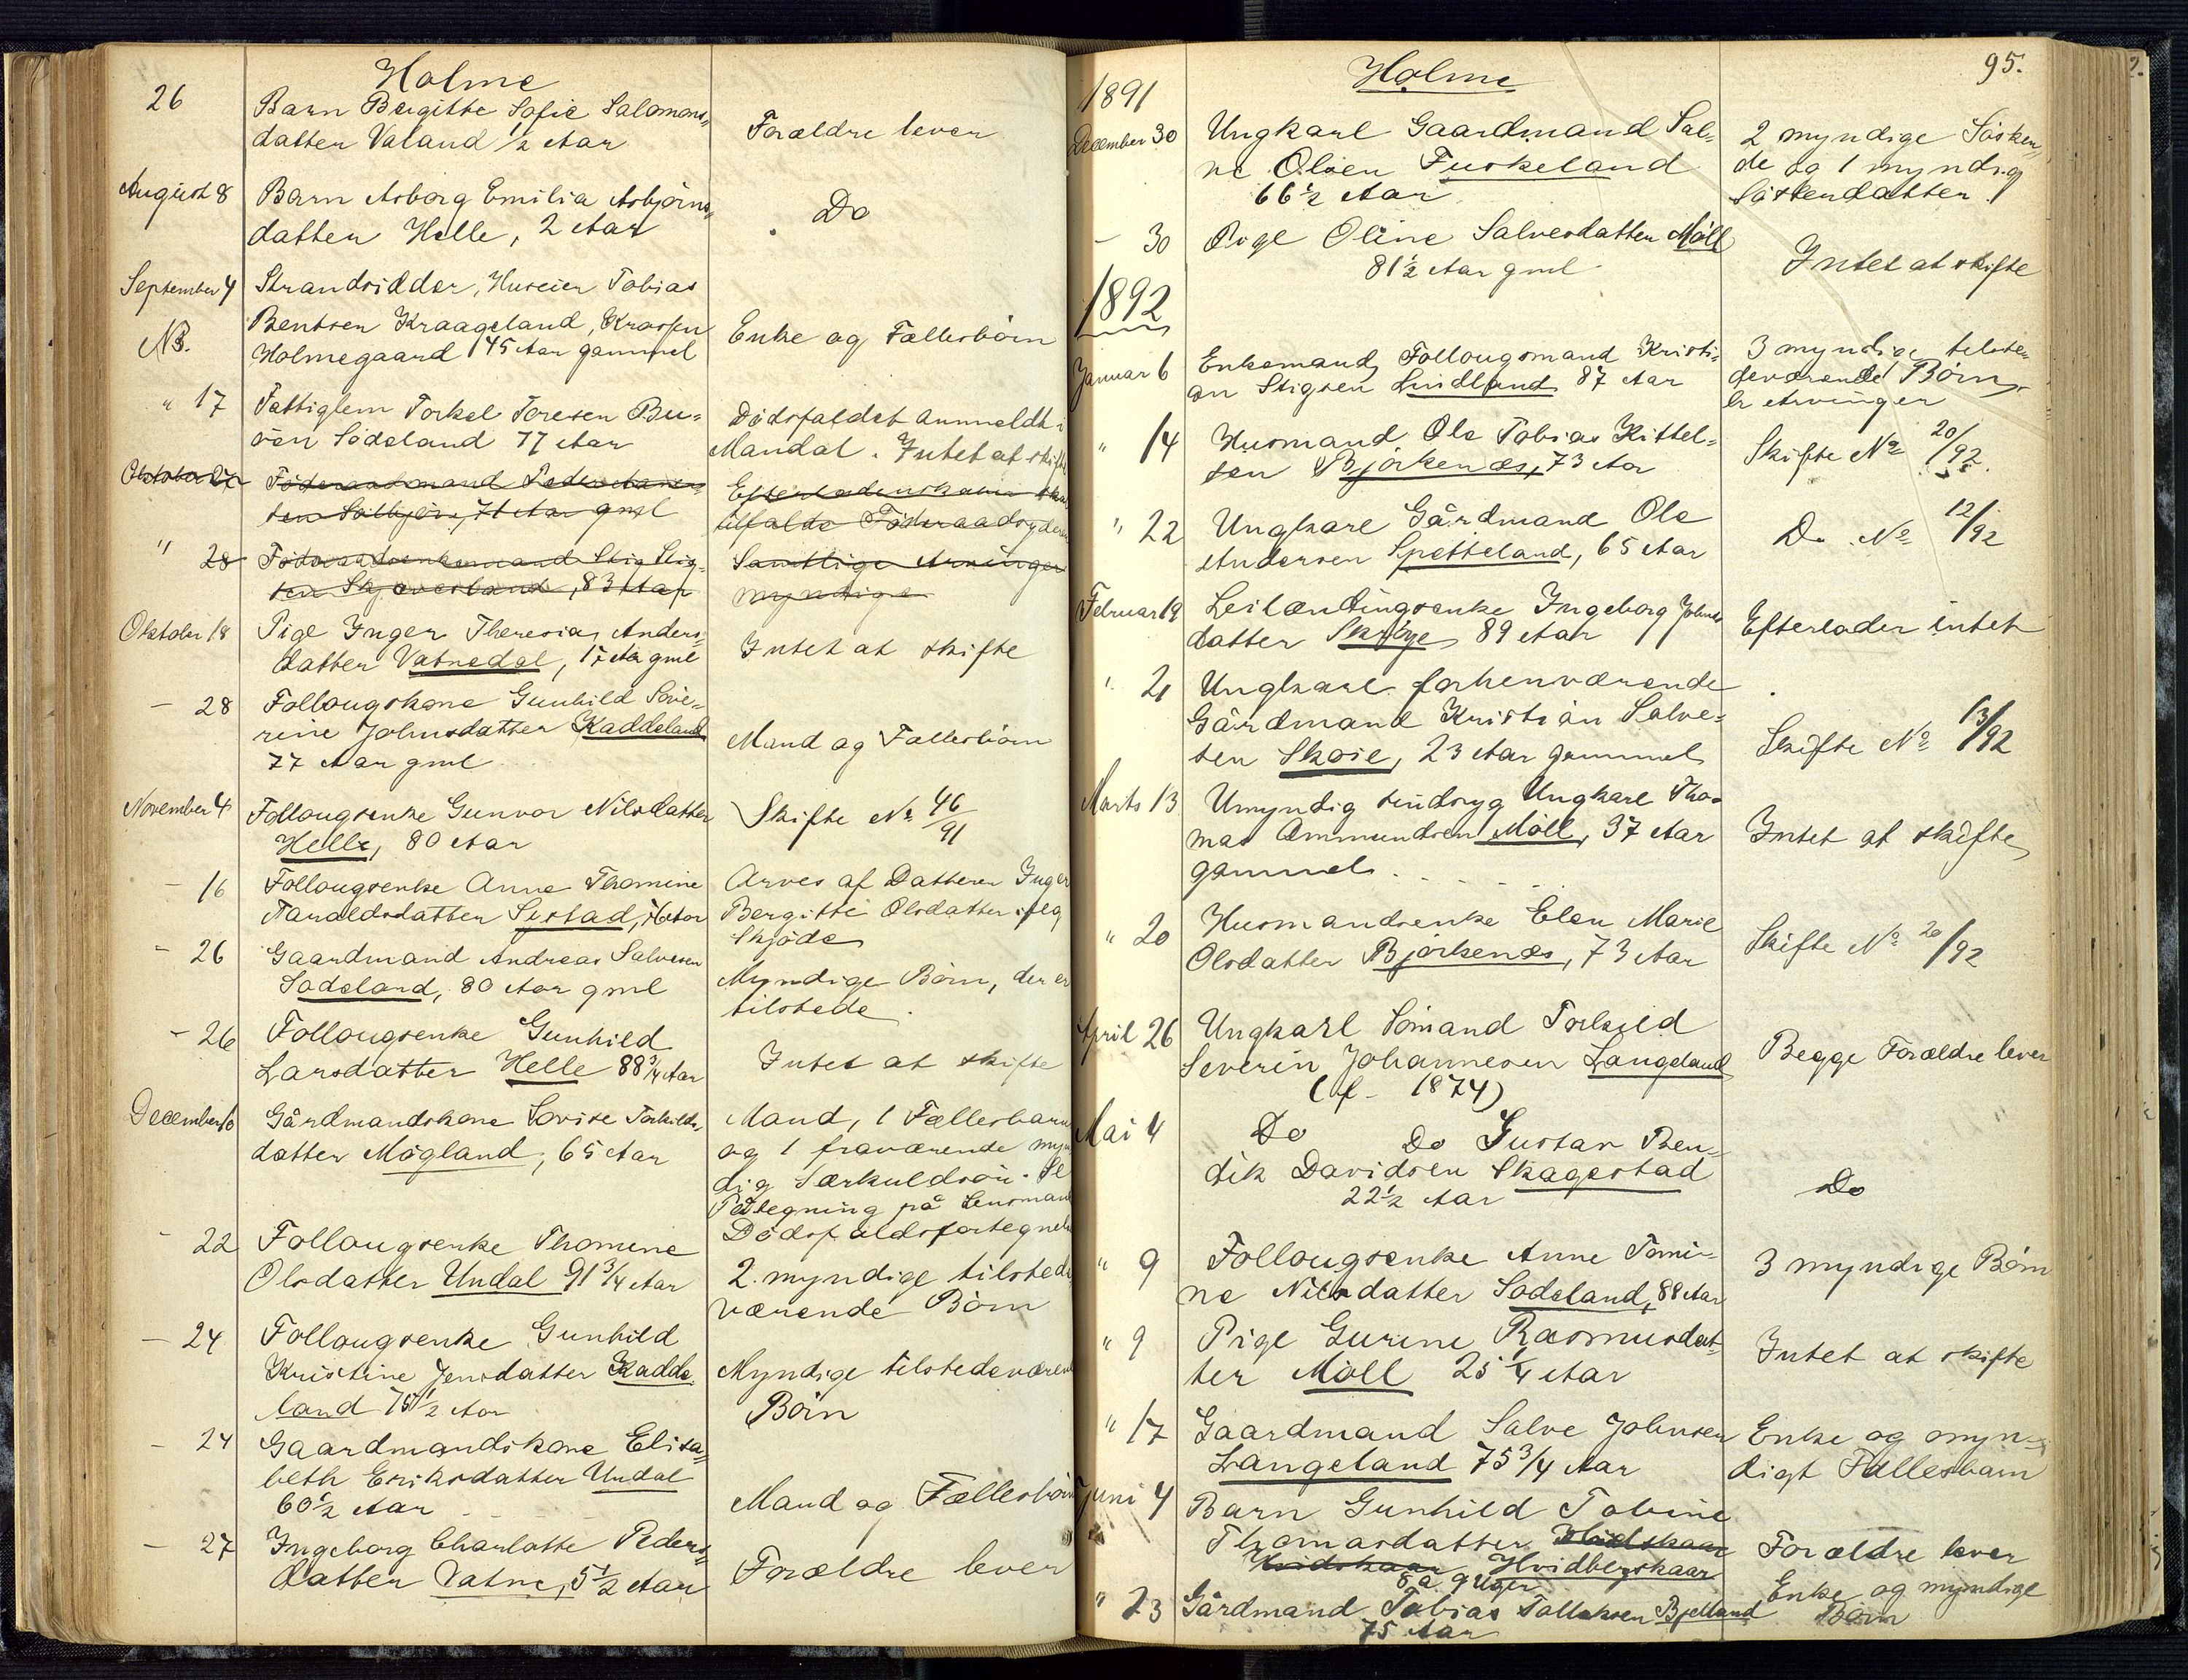 Holme
26
Barn Birgitte Sofie Salomons-
datter Valand 1/2 Aar
Forældre lever
August 8
Barn Asborg Emilia Asbjørns-
datter Helle, 2 Aar
Do
September 4
Strandsidder, Huseier Tobias
NB.
Bentsen Kraageland, Krossen
Holmegaard 45 Aar gammel
Enke og Fællesbörn
" 17
Fattiglem Torkel Teresen Bu-
øen Sødeland 77 Aar
Dödsfaldet anmeldt i
Mandal. Intet at skifte
Oktober 27
Föderaadsmand Peder Aanen-
sen Solbjör, 71 Aar gml
tilfalde Föderaadsyderen
" 28
Föderaadsenkemand Stig Stig-
sen Skjævesland, 83 Aar
Samtlige Arvinger
myndige
Oktober 18
Pige Inger Theresia Anders-
datter Vatnedal, 17 Aar gml
Intet at skifte
- 28
Follougskone Gunhild Seve-
rine Johnsdatter Kaddeland
77 Aar gml
Mand og Fællesbörn
November 4
Follougsenke Gunvor Nilsdatter
Helle, 80 Aar
Skifte No 46/91
- 16
Follougsenke Anne Thomine
Taraldsdatter Sestad, Aar
Arves af Datteren Inger
Bergitte Olsdatter ifølg
Skjöde
- 26
Gaardmand Andreas Salvesen
Sodeland, 80 Aar gml
Myndige Börn, der er
tilstede.
- 26
Follougsenke Gunhild
Larsdatter Helle 88 3/4 Aar
Intet at skifte
December 10
Gårdmandskone Lovise Torkilds-
datter Mögland, 65 Aar
Mand, 1 Fællesbarn
og 1 fraværende myn
dig Særkuldsön. Se
Påtegning på Lensmand
Dödsfaldsfortegnelse
- 22
Follougsenke Thomine
Olsdatter Undal 91 3/4 Aar
2 myndige tilstede
værende Börn
- 24
Follougsenke Gunhild
Kristine Jensdatter Kadde-
land 75 1/2 Aar
Myndige tilstedeværen
Börn
- 24
Gaardmandskone Elisa-
beth Eriksdatter Undal
60 1/2 Aar
Mand og Fællesbörn
- 27
Ingeborg Charlotte Peders-
datter Vatne, 5 1/2 Aar
Forældre lever
95.
Holme
1891
December 30
Ungkarl Gaardmand Sal-
ve Olsen Fuskeland
66 1/2 Aar
2 myndige Sösken-
de og 1 myndig
Söskendatter
- 30
Pige Oline Salvesdatter Möll
81 1/2 Aar gml
Intet at skifte
1892
Januar 6
Enkemand, Follougsmand Kristi-
an Stigsen Lindland 87 Aar
3 myndige tilste-
deværende Börn
er Arvinger
" 14
Husmand Ole Tobias Kittel-
sen Bjorkenæs, 73 Aar
Skifte No 20/92.
" 22
Ungkarl Gårdmand Ole
Andersen Spetteland, 65 Aar
Do No 12/92
Februar 19
Leilændingsenke Ingeborg Johns
datter Skröye 89 Aar
Efterlader intet
" 21
Ungkarl forhenværende
Gårdmand Kristian Salve-
sen Skoie, 23 Aar gammel
Skifte No 13/92
Marts 13
Umyndig sindsyg Ungkarl Tho-
mas Ammundsen Möll, 37 Aar
gammel
Intet at skifte
" 20
Husmandsenke Elen Marie
Olsdatter Bjorkenæs, 73 Aar
Skifte No 20/92
April 26
Ungkarl Sömand Torkild
Severin Johannesen Langeland
(f - 1874)
Begge Forældre lever
Mai 4
Do Do Gustav Ben-
dik Davidsen Skagestad
22 1/2 Aar
Do
" 9
Follougsenke Anne Tomi-
ne Nilsdatter Sodeland, 88 Aar
3 myndige Börn
" 9
Pige Gurine Rasmusdat-
ter Möll 25 1/4 Aar
Intet at skifte
" 17
Gaardmand Salve Johnsen
Langeland 75 3/4 Aar
Enke og myn-
digt Fællesbarn
Juni 4
Barn Gunhild Tobine
Thomasdatter
Hvidbergskaar
9 Uger
Forældre lever
" 23
Gårdmand Tobias Tollaksen Bjelland
75 Aar
Enke og myndige
Börn